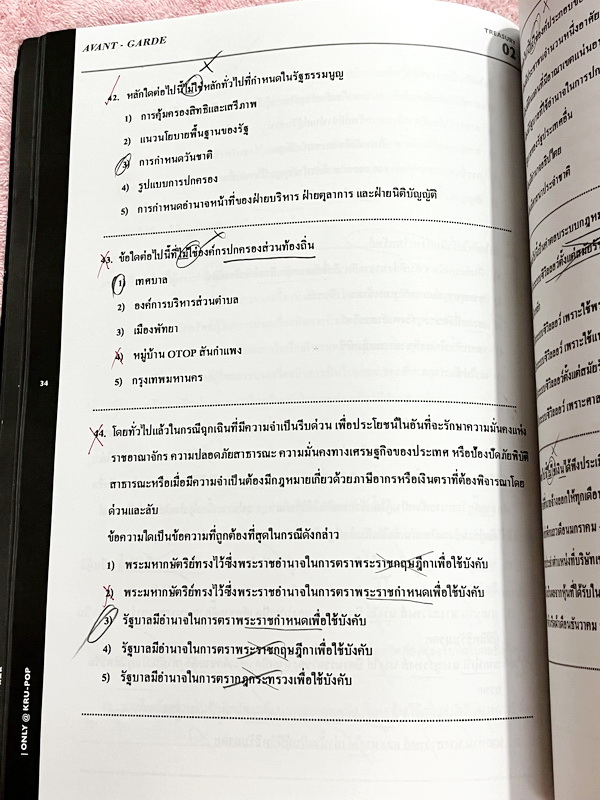 AVANT - GARDE
TREASURE
02
42. หลักใดต่อไปนี้ไม่ใช่หลักทั่วไปที่กำหนดในรัฐธรรมนูญ
1) การคุ้มครองสิทธิและเสรีภาพ
2) แนวนโยบายพื้นฐานของรัฐ
3) การกำหนดวันชาติ
4) รูปแบบการปกครอง
5) การกำหนดอำนาจหน้าที่ของฝ่ายบริหาร ฝ่ายตุลาการ และฝ่ายนิติบัญญัติ
43. ข้อใดต่อไปนี้ที่ไม่ใช่องค์กรปกครองส่วนท้องถิ่น
1) เทศบาล
2) องค์การบริหารส่วนตำบล
3) เมืองพัทยา
4) หมู่บ้าน OTOP สันกำแพง
5) กรุงเทพมหานคร
34
44. โดยทั่วไปแล้วในกรณีฉุกเฉินที่มีความจำเป็นรีบด่วน เพื่อประโยชน์ในอันที่จะรักษาความมั่นคงแห่ง
ราชอาณาจักร ความปลอดภัยสาธารณะ ความมั่นคงทางเศรษฐกิจของประเทศ หรือป้องปัดภัยพิบัติ
สาธารณะหรือเมื่อมีความจำเป็นต้องมีกฎหมายเกี่ยวด้วยภาษีอากรหรือเงินตราที่ต้องพิจารณาโดย
ด่วนและลับ
ข้อความใดเป็นข้อความที่ถูกต้องที่สุดในกรณีดังกล่าว
1) พระมหากษัตริย์ทรงไว้ซึ่งพระราชอำนาจในการตราพระราชกฤษฎีกาเพื่อใช้บังคับ
2) พระมหากษัตริย์ทรงไว้ซึ่งพระราชอำนาจในการตราพระราชกำหนดเพื่อใช้บังคับ
3) รัฐบาลมีอำนาจในการตราพระราชกำหนดเพื่อใช้บังคับ
4) รัฐบาลมีอำนาจในการตราพระราชกฤษฎีกาเพื่อใช้บังคับ
5) รัฐบาลมีอำนาจในการตรากฎกระทรวงเพื่อใช้บังคับ
| ONLY @ KRU-POP